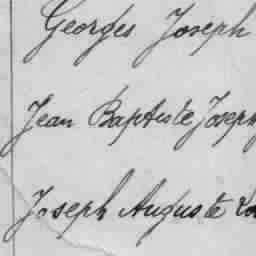 Georges Joseph
Jean Baptiste Joseph
Joseph Auguste